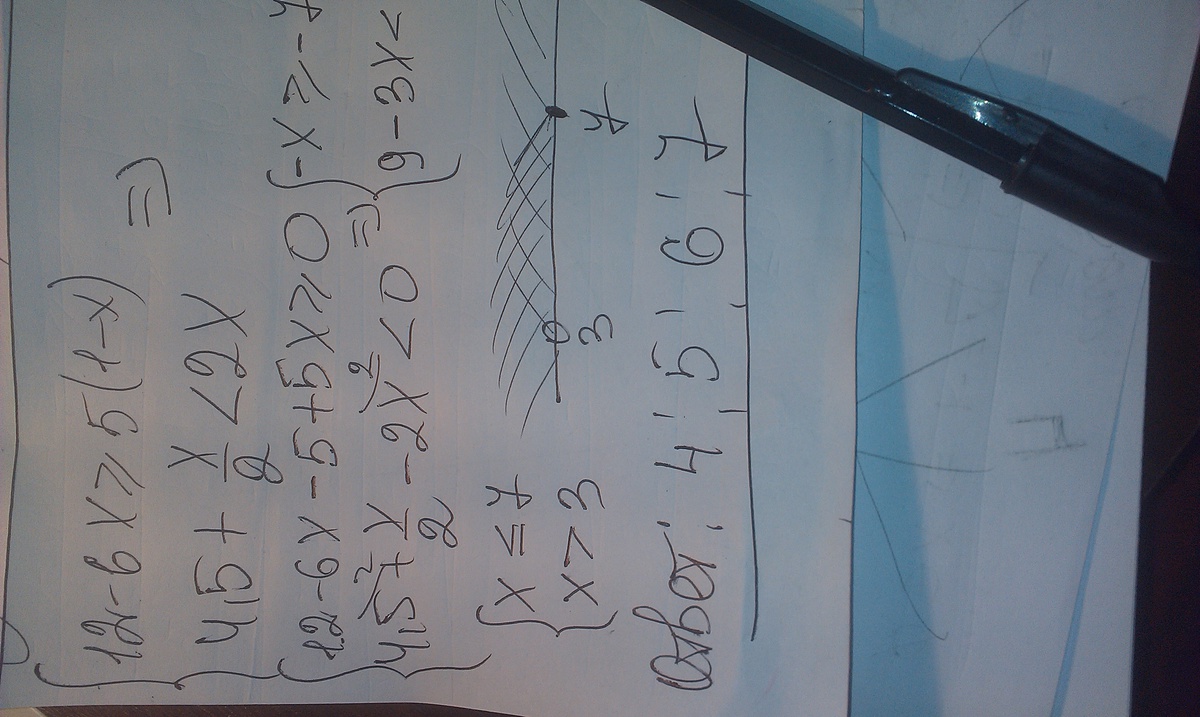 { 12-6x ≥ 5(1-x) =>
4,5 + x/2 < 2x
{ 12-6x-5+5x ≥ 0 => { -x ≥ -7
4,5 + x/2 - 2x < 0 9-3x <
{ x ≤ 7
x > 3
3 7
Ответ: 4; 5; 6; 7